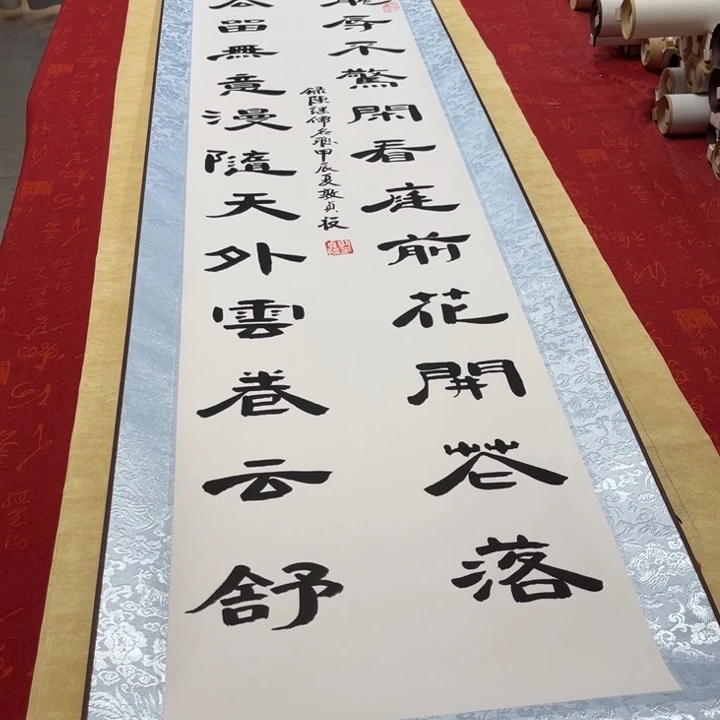 辱不驚閑看庭前花開花落
去留無意漫隨天外雲卷云舒
錄陳 甲辰夏敦貞